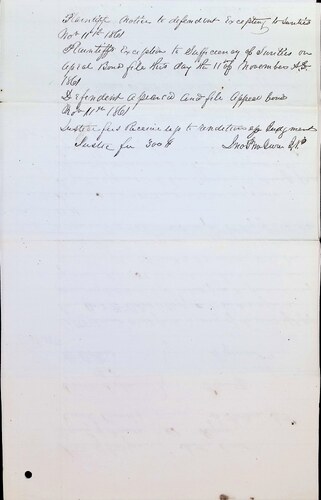 Plaintiff Notice to defendent Excepting to Sureties
Nov 11th 1861
Plaintiffs Exception to Sufficiency of Sureties on
Apeal Bond file this day the 11 of November A.D.
1861
Defendent Appeared and file Appeal bond
Nov 11th 1861
Justice fees Receive up to rendition of Judgment
Justice fee 300